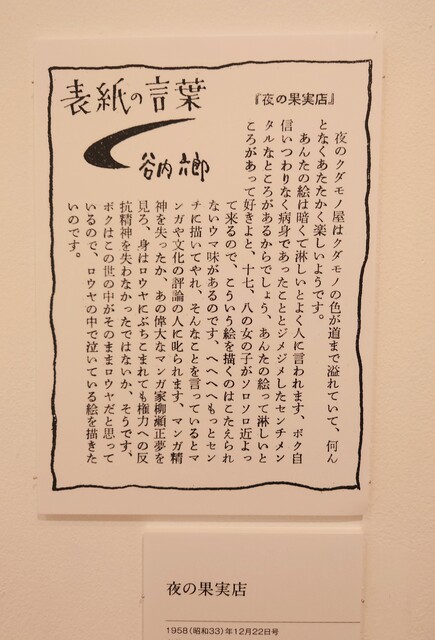 表紙の言葉
谷内六郎
『夜の果実店』
夜のクダモノ屋はクダモノの色が道まで溢れていて、何ん
となくあたたかく楽しいようです。
あんたの絵は暗くて淋しいとよく人に言われます、ボク自
信いつわりなく病身であったこととジメジメしたセンチメン
タルなところがあるからでしょう、あんたの絵って淋しいと
ころがあって好きよと、十七、八の女の子がソロソロ近よっ
て来るので、こういう絵を描くのはこたえられ
ないウマ味があるのです、へへへへもっとセン
チに描いてやれ、そんなことを言っているとマ
ンガや文化の評論の人に叱られます、マンガ精
神を失ったか、あの偉大なマンガ家柳瀬正夢を
見ろ、身はロウヤにぶちこまれても権力への反
抗精神を失わなかったではないか、そうです、
ボクはこの世の中がそのままロウヤだと思って
いるので、ロウヤの中で泣いている絵を描きた
いのです。
夜の果実店
1958(昭和33)年12月22日号